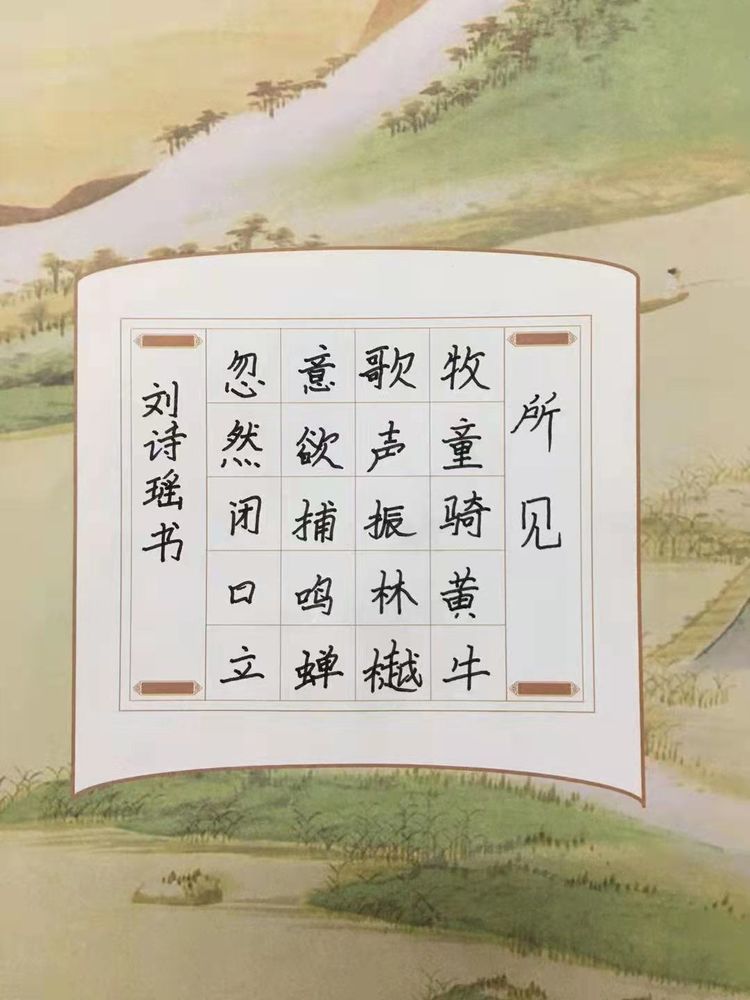 所见
牧童骑黄牛
歌声振林樾
意欲捕鸣蝉
忽然闭口立
刘诗瑶书